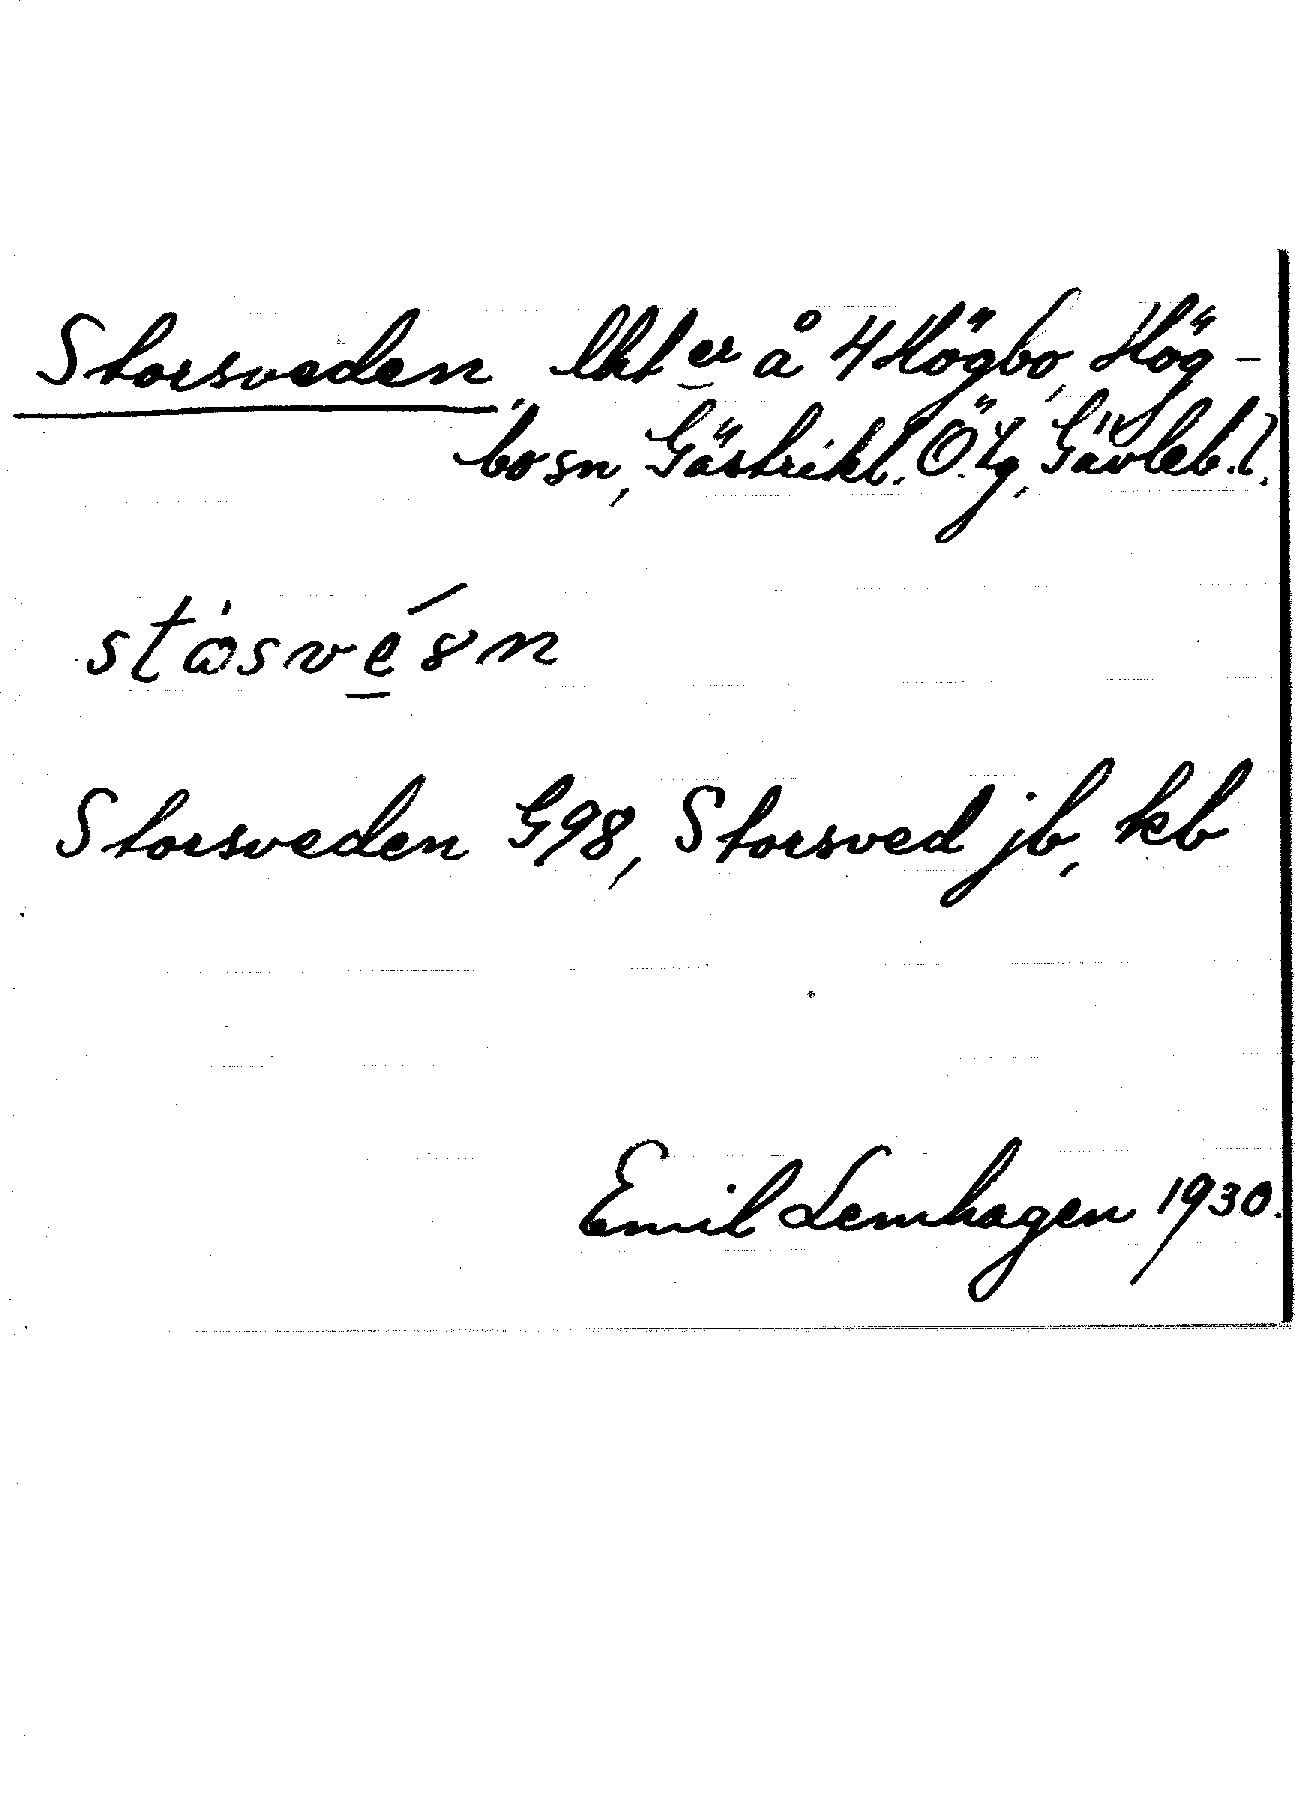 Storsveden, lht er å 4 Högbo, Hög-
bo sn, Gästrikl. Ö. tg, Gävleb. l.
Storsveden G98, Storsved jb, kb
Emil Lemhagen 1930.